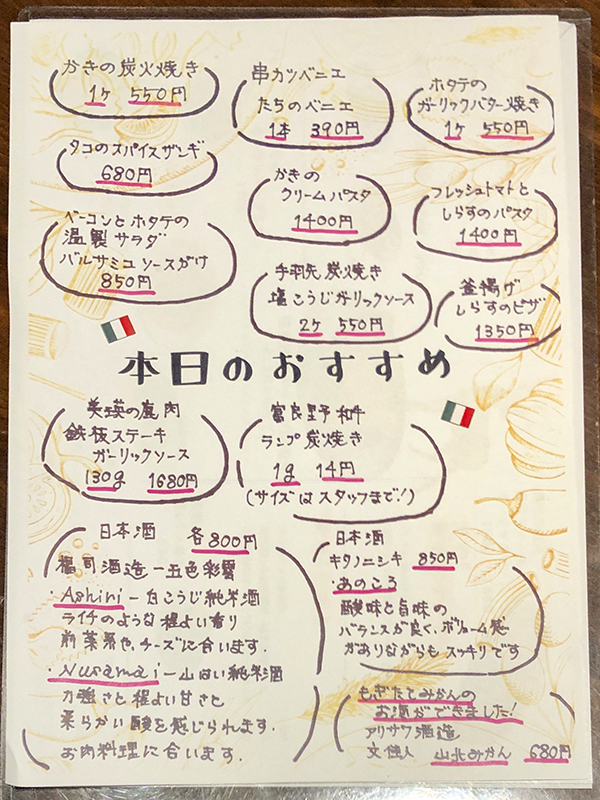 かきの炭火焼き
1ヶ 550円
串カツベニエ
たちのベニエ
1本 390円
ホタテの
ガーリックバター焼き
1ヶ 550円
タコのスパイスザンギ
680円
かきの
クリームパスタ
1400円
フレッシュトマトと
しらすのパスタ
1400円
ベーコンとホタテの
温製サラダ
バルサミコソースがけ
850円
手羽先炭火焼き
塩こうじガーリックソース
2ヶ 550円
釜揚げ
しらすのピザ
1350円
本日のおすすめ
美瑛の鹿肉
鉄板ステーキ
ガーリックソース
130g 1680円
富良野和牛
ランプ炭焼き
1g 14円
(サイズはスタッフまで!)
日本酒 各800円
福司酒造-五色彩雲
・Ashiri-白こうじ純米酒
ライチのような程よい香り
前菜系や、チーズに合います.
・Nusamai-山はい純米酒
力強さと程よい甘さと
柔らかい酸を感じられます.
お肉料理に合います.
日本酒
キタノニシキ 850円
・あのころ
酸味と旨味の
バランスが良く、ボリューム感
がありながらも スッキリです
もぎたてみかんの
お酒ができました!
アリサワ酒造
文佳人 山北みかん 680円